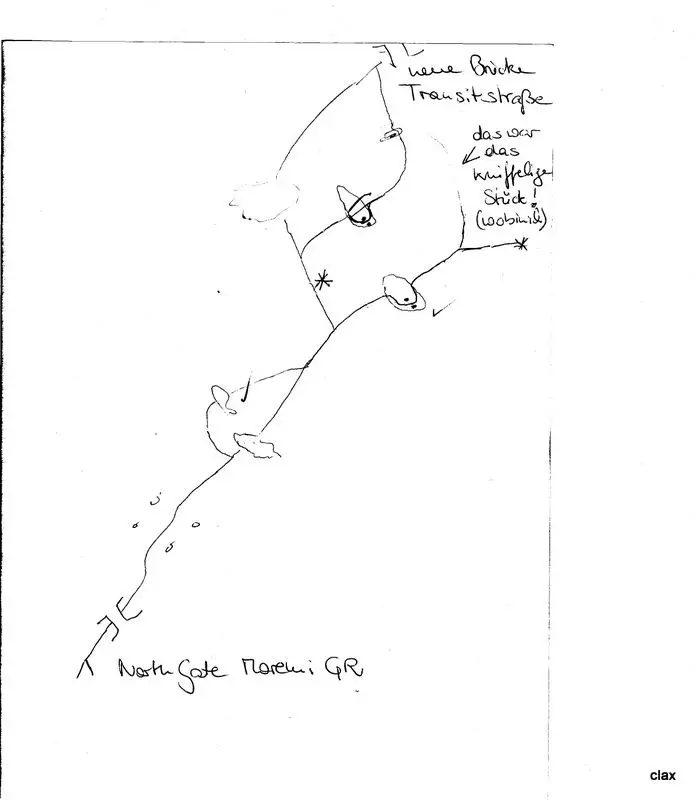 neue Brücke
Transitstraße
das war
das
kniffelige
Stück!
North Gate Moremi GR
clax